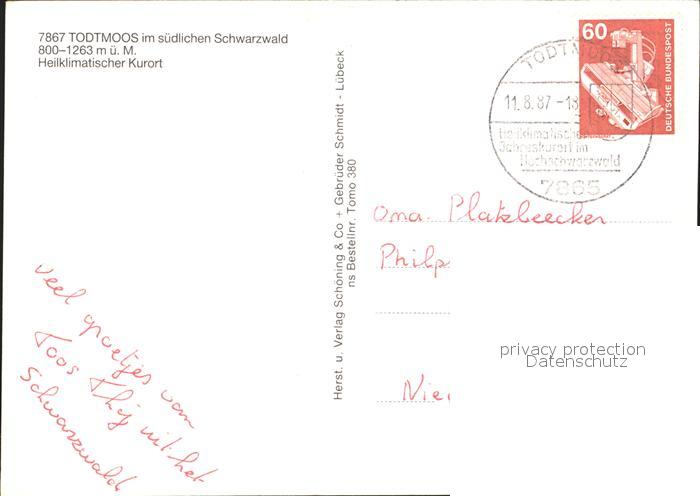 7867 TODTMOOS im südlichen Schwarzwald
800–1263 m ü. M.
Heilklimatischer Kurort
60
DEUTSCHE BUNDESPOST
TODTMOOS
11.8.87-18
Heilklimatischer
Jahreskurort im
Hochschwarzwald
7865
Herst. u. Verlag Schöning & Co + Gebrüder Schmidt - Lübeck
ns Bestellnr. Tomo 380
Oma. Platzbeecker
Philp
Nie
privacy protection
Datenschutz
veel groetjes van
Toos Thij uit het
Schwarzwald